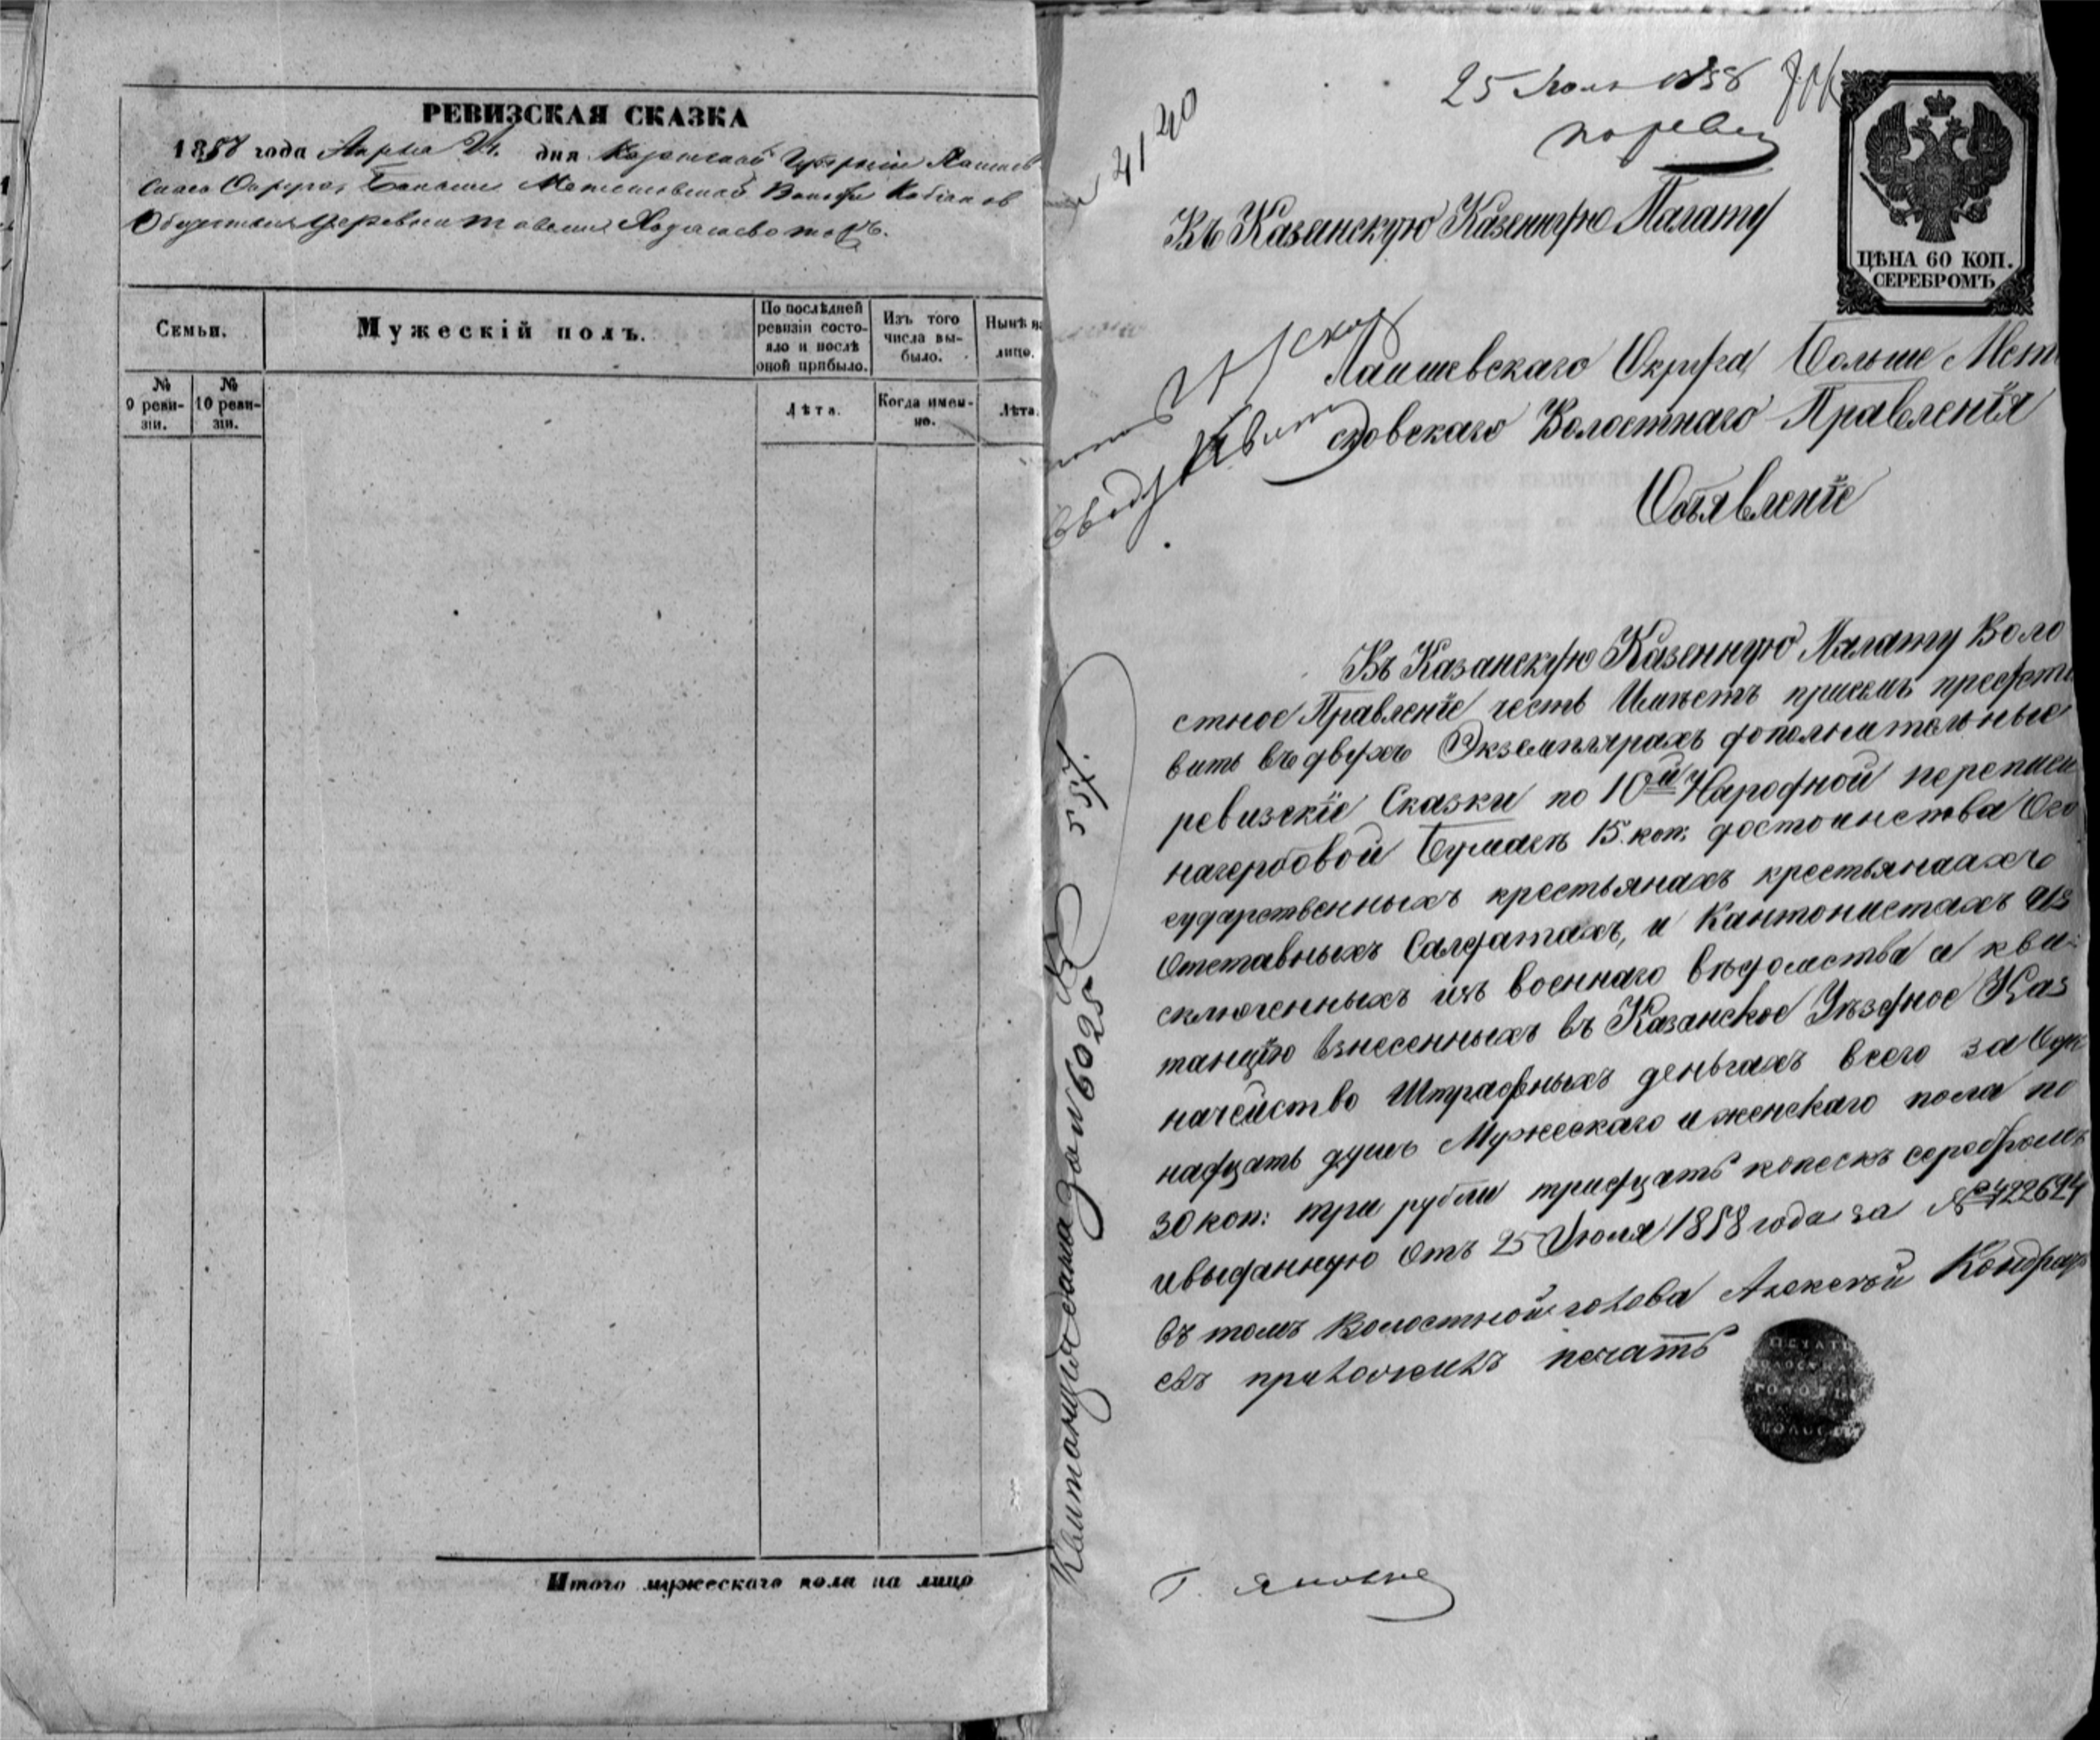 РЕВИЗСКАЯ СКАЗКА
1858 года Апреля дня Казанской Губернии Лаишев
скаго Округа, Больше Метесковской Волости Кобяков
Общества деревни
Семьи.
Мужескій полъ.
По послѣдней
ревизіи состо-
яло и послѣ
оной прибыло.
Изъ того
числа вы-
было.
Нынѣ на
лицо.
№
9 реви-
зіи.
№
10 реви-
зіи.
Лѣта.
Когда имен-
но.
Лѣта.
Итого мужескаго пола на лицо
4140
25 Июля 1858
по ревиз
ЦѢНА 60 КОП.
СЕРЕБРОМЪ
Въ Казанскую Казенную Палату
Лаишевскаго Округа Больше Мете
сковскаго Волостнаго Правленія
Объявленіе
Въ Казанскую Казенную Палату Воло
стное Правленіе честь Имѣетъ присемъ предста
вить въ двухъ Экземплярахъ дополнительные
ревизскіе Сказки по 10й Народной переписи
нагербовой Бумагѣ 15 коп: достоинства Ого
сударственныхъ крестьянахъ крестьянаахъ
Отставныхъ Салдатахъ, и Кантонистахъ аіз
сключенныхъ изъ военнаго вѣдомства и кви-
танцію взнесенныхъ въ Казанское Уѣздное Каз
начейство Штрафныхъ деньгахъ всего за Оди
надцать душъ Мужескаго и женскаго пола по
30 коп: три рубли тридцать копеекъ серебромъ
ивыданную Отъ 25 Июля 1858 года за № 422624
въ томъ Волостной голова Алексей Кондрать
евъ приложилъ печать
ПЕЧАТЬ
ГОЛОВЫ
ВОЛОСТИ
Квитанція за № 6025
557.